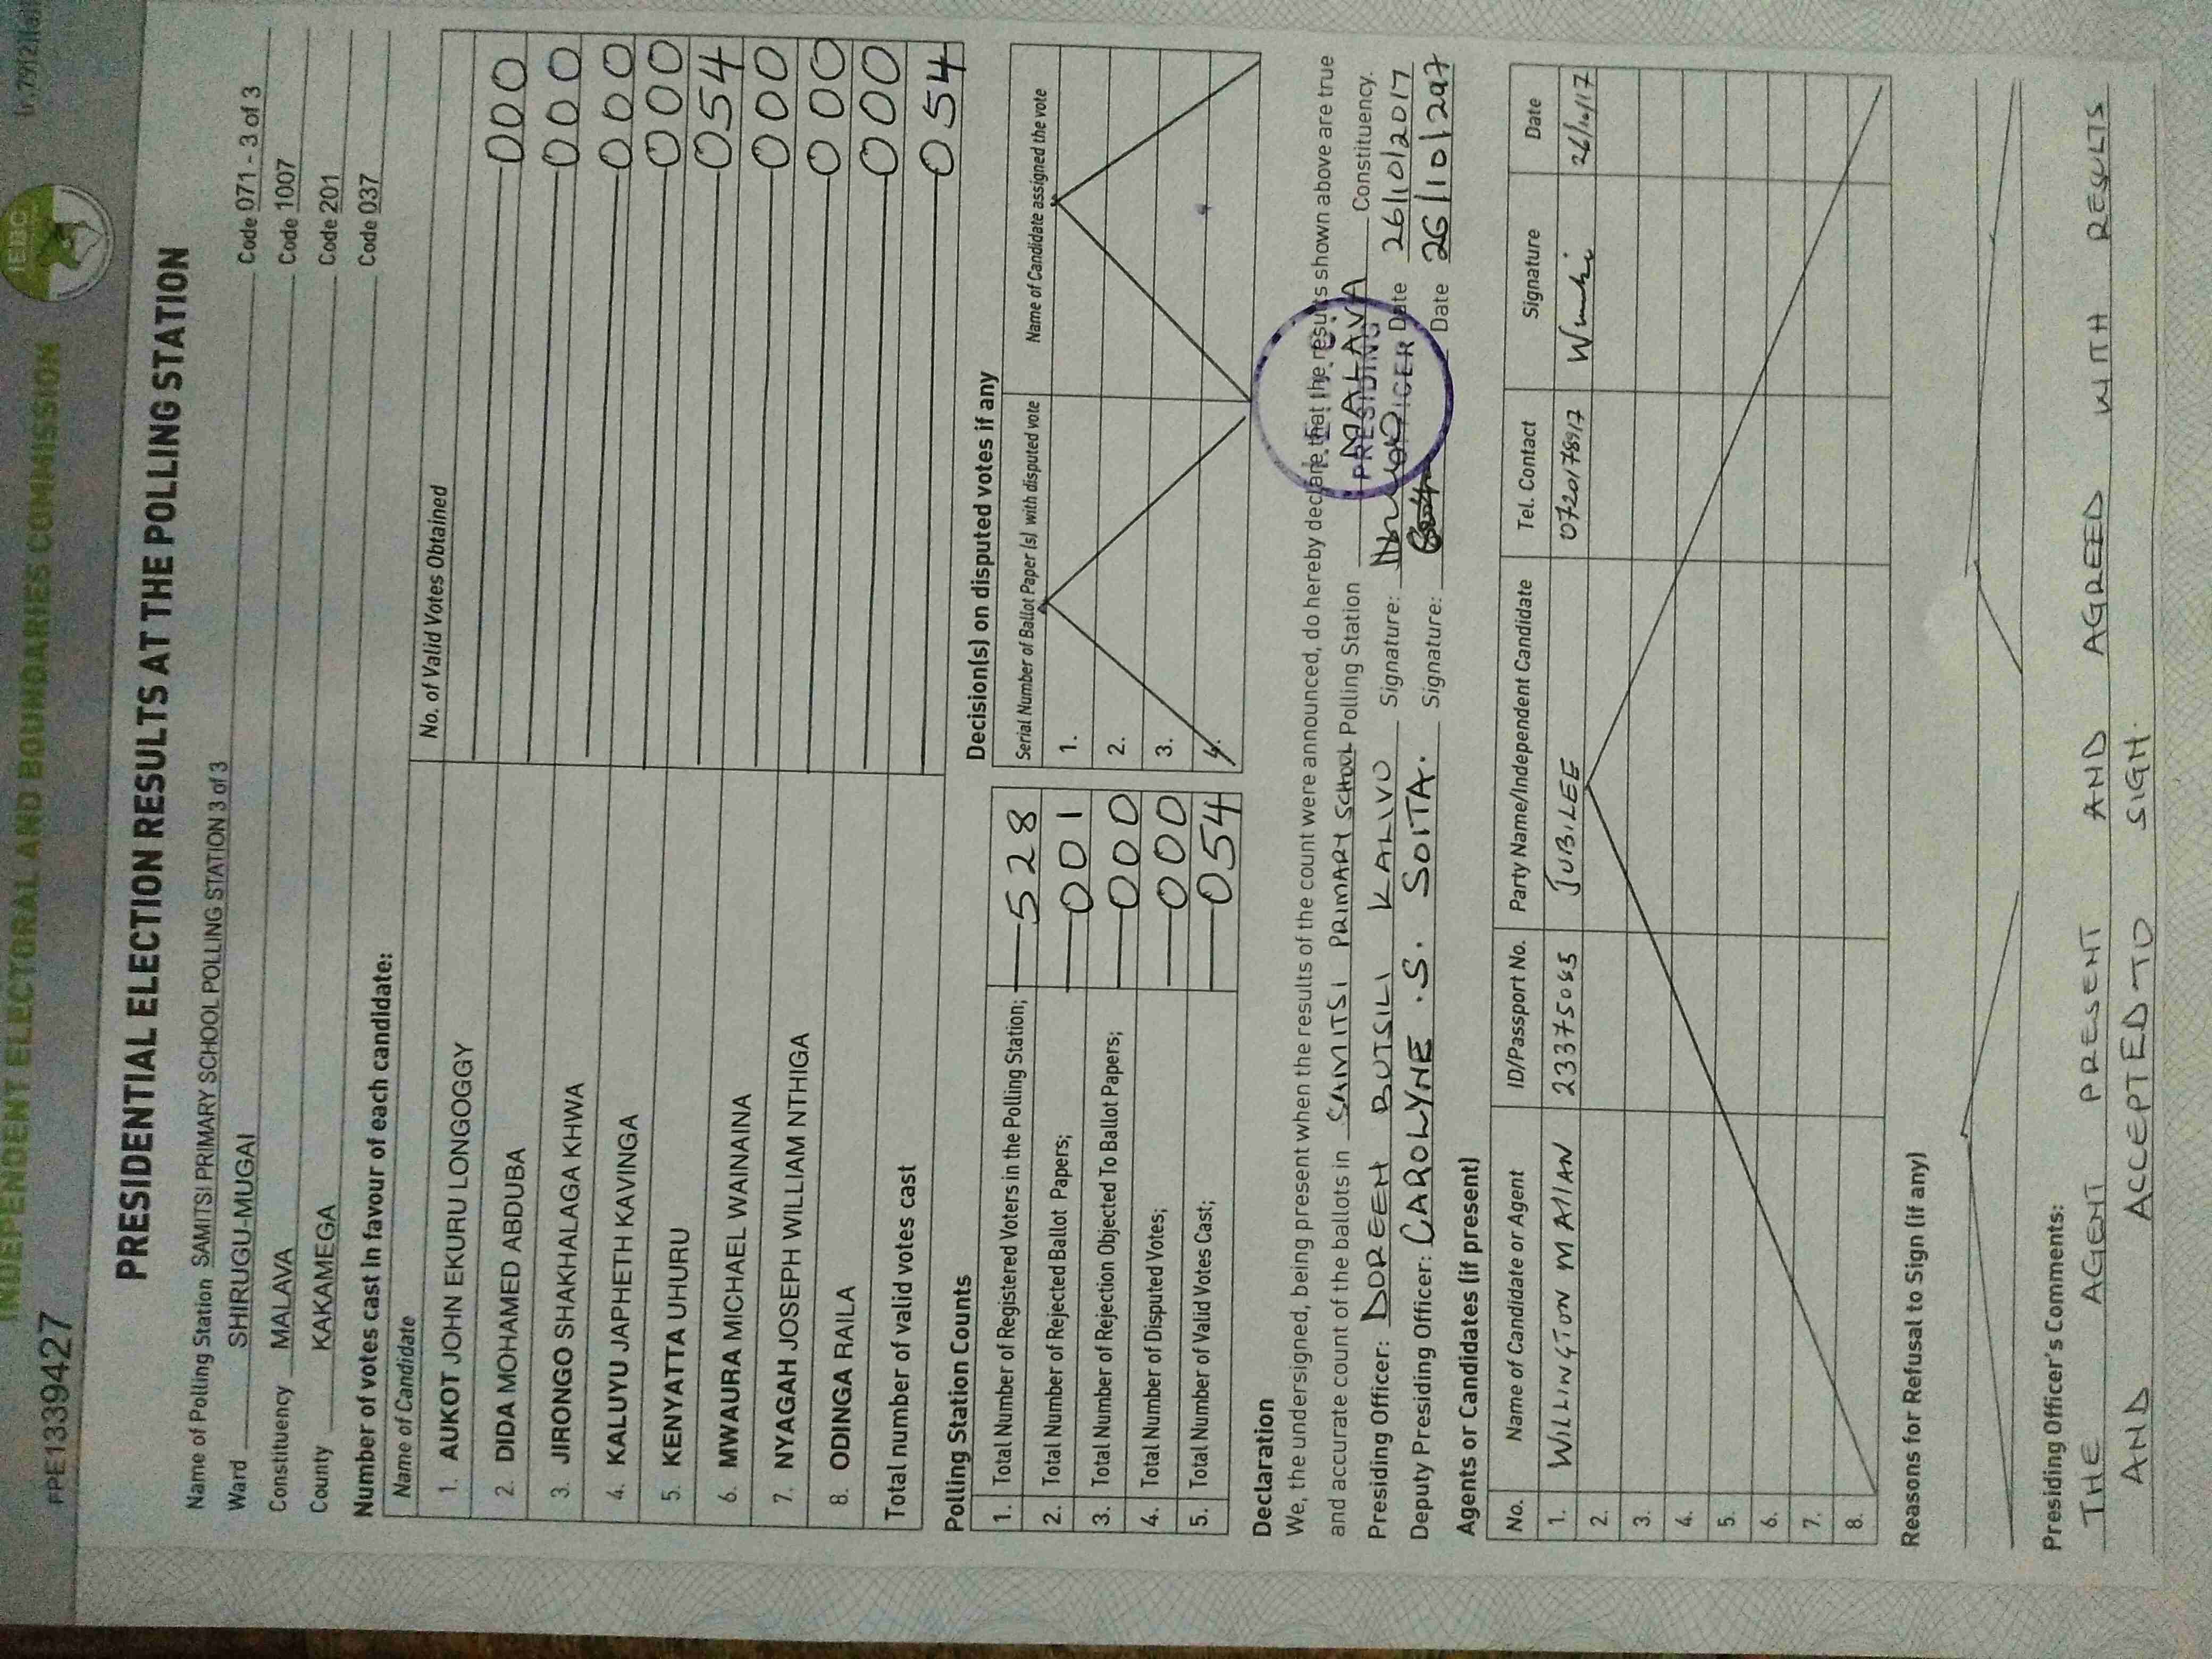 INDEPENDENT ELECTORAL AND BOUNDARIES COMMISSION
IEBC
PPE1339427
PRESIDENTIAL ELECTION RESULTS AT THE POLLING STATION
Name of Polling Station SAMITSI PRIMARY SCHOOL POLLING STATION 3 of 3 Code 071 - 3 of 3
Ward SHIRUGU-MUGAI Code 1007
Constituency MALAVA Code 201
County KAKAMEGA Code 037
Number of votes cast in favour of each candidate:
Name of Candidate No. of Valid Votes Obtained
1. AUKOT JOHN EKURU LONGOGGY 000
2. DIDA MOHAMED ABDUBA 000
3. JIRONGO SHAKHALAGA KHWA 000
4. KALUYU JAPHETH KAVINGA 000
5. KENYATTA UHURU 054
6. MWAURA MICHAEL WAINAINA 000
7. NYAGAH JOSEPH WILLIAM NTHIGA 000
8. ODINGA RAILA 000
Total number of valid votes cast 054
Polling Station Counts
1. Total Number of Registered Voters in the Polling Station; 528
2. Total Number of Rejected Ballot Papers; 001
3. Total Number of Rejection Objected To Ballot Papers; 000
4. Total Number of Disputed Votes; 000
5. Total Number of Valid Votes Cast; 054
Decision(s) on disputed votes if any
Serial Number of Ballot Paper (s) with disputed vote Name of Candidate assigned the vote
1.
2.
3.
4.
Declaration
We, the undersigned, being present when the results of the count were announced, do hereby declare that the results shown above are true
and accurate count of the ballots in SAMITSI PRIMARY SCHOOL Polling Station MALAVA Constituency.
Presiding Officer: DOREEN BUTSILI KALIVO Signature: Date 26/10/2017
Deputy Presiding Officer: CAROLYNE .S. SOITA. Signature: Date 26/10/2017
PRESIDING
OFFICER
Agents or Candidates (if present)
No. Name of Candidate or Agent ID/Passport No. Party Name/Independent Candidate Tel. Contact Signature Date
1. WILLINGTON JUBILEE 0720178917 26/10/17
2.
3.
4.
5.
6.
7.
8.
Reasons for Refusal to Sign (if any)
Presiding Officer's Comments:
THE AGENT PRESENT AND AGREED WITH RESULTS
AND ACCEPTED TO SIGN.